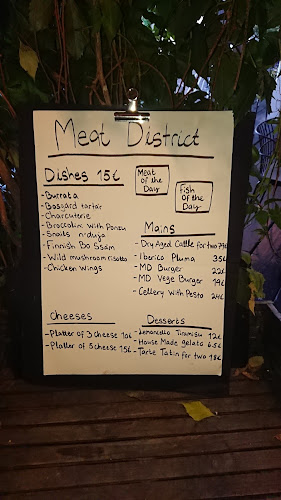 Meat District
Dishes 15€
- Burrata
- Bossard tartar
- Charcuterie
- Broccolini with Ponzu
- Snails n'duja
- Finnish Bo Ssam
- Wild mushroom risotto
- Chicken Wings
Meat
Of the
Day
Fish
Of the
Day
Mains
- Dry Aged Cattle for two 79€
- Iberico Pluma 35€
- MD Burger 22€
- MD Vege Burger 19€
- Cellery With Pesto 24€
Cheeses
- Platter of 3 Cheese 10€
- Platter of 5 cheese 15€
Desserts
- Lemoncello Tiramisu 12€
- House Made gelato 6.5€
- Tarte Tatin for two 18€